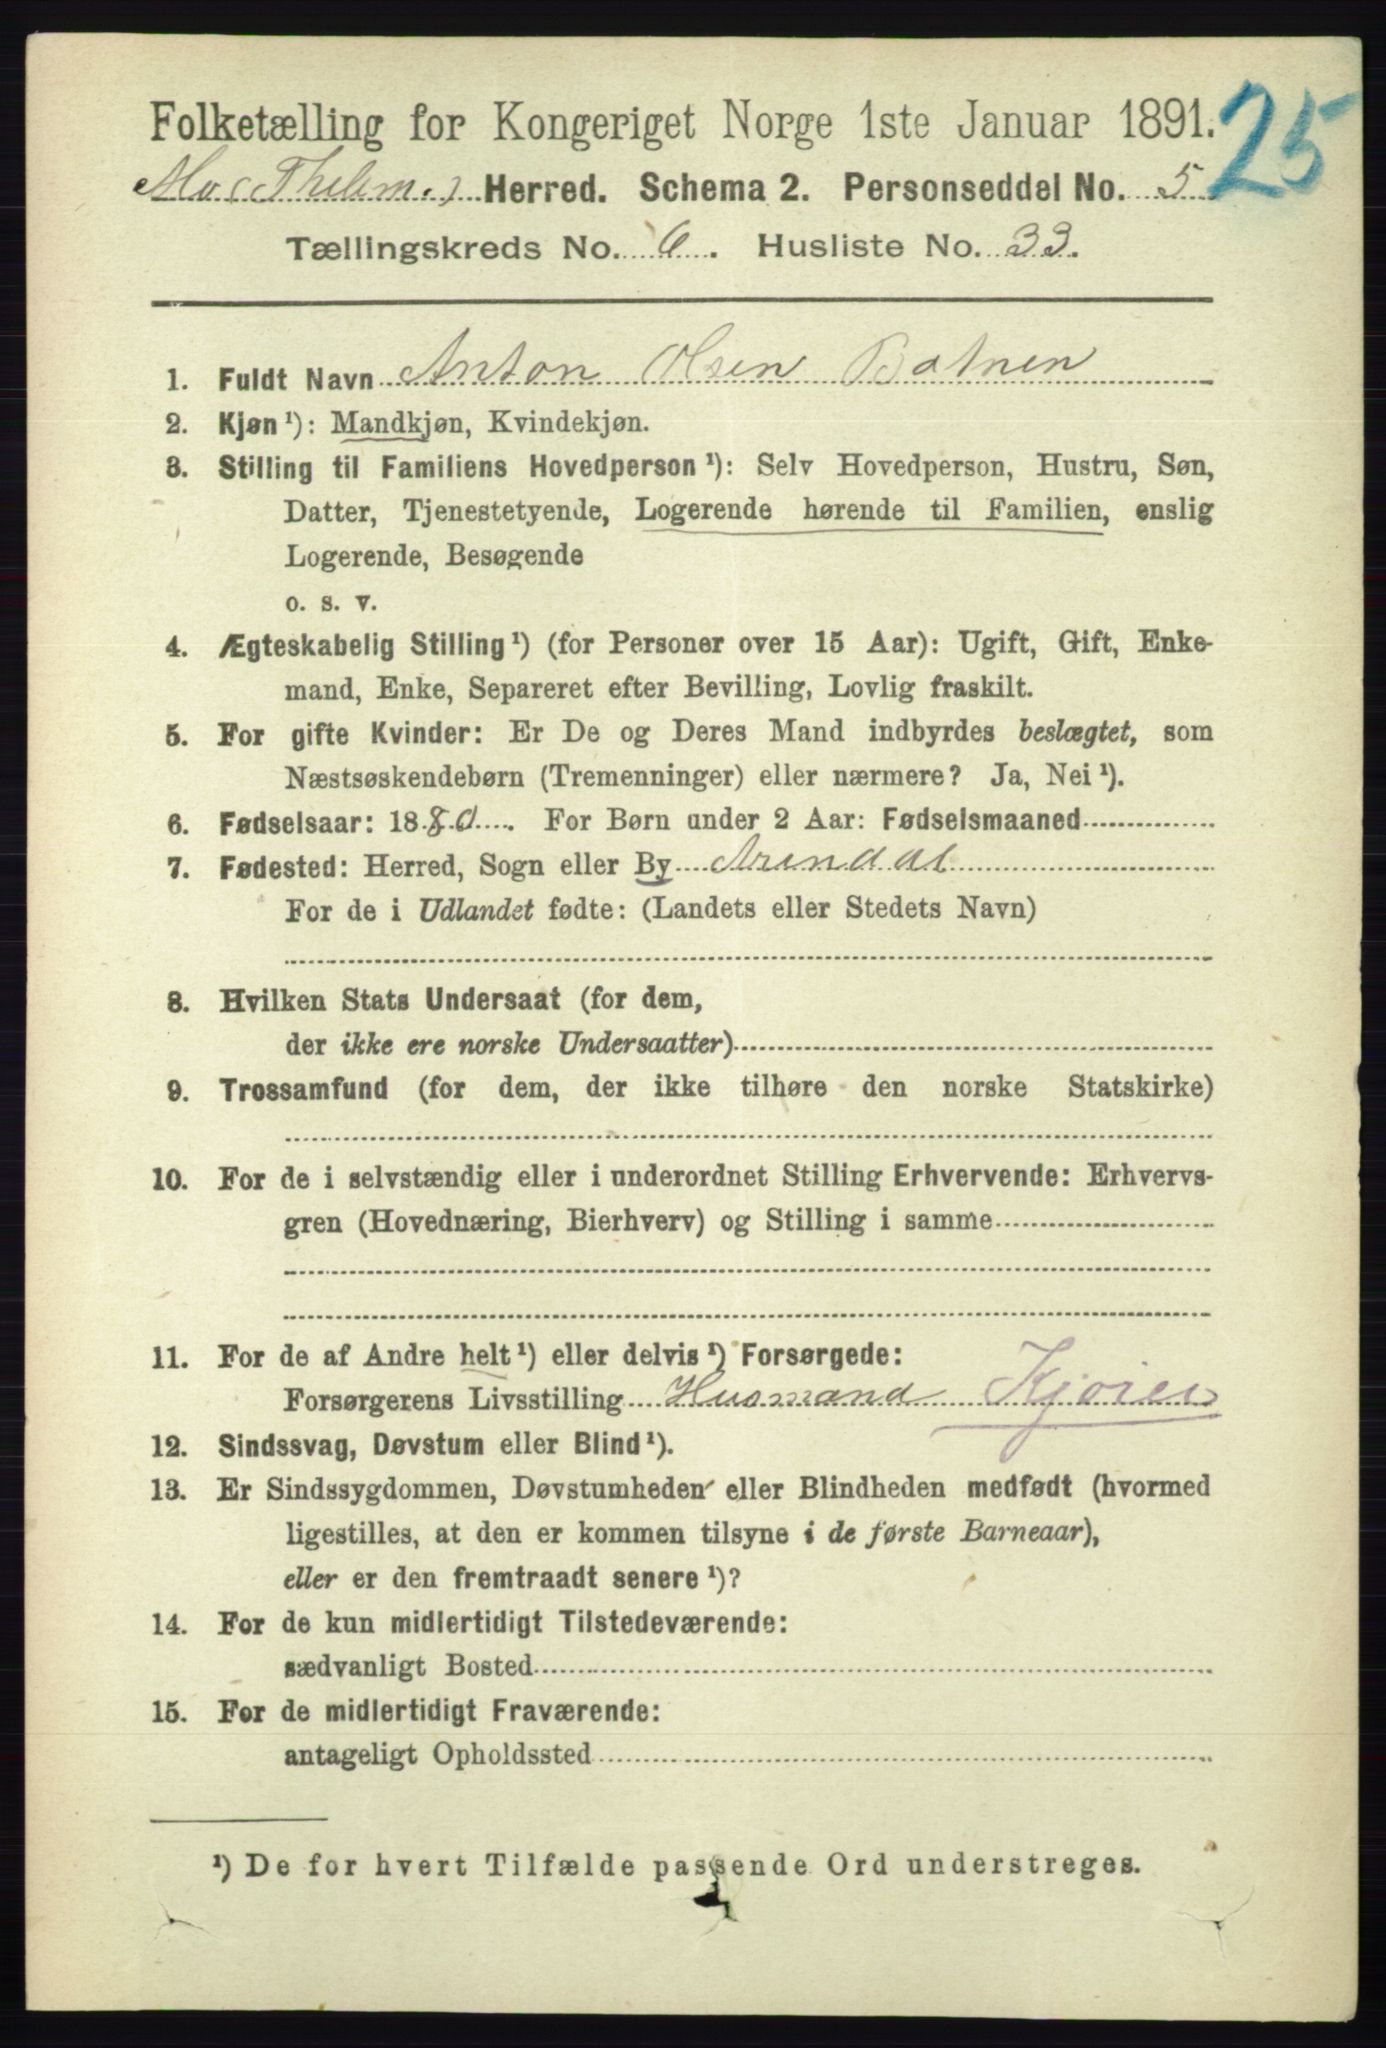 Folketælling for Kongeriget Norge 1ste Januar 1891.
25
Mo (Thelem.) Herred. Schema 2. Personseddel No. 5
Tællingskreds No. 6. Husliste No. 33.
1. Fuldt Navn Anton Olsen Botnen
2. Kjøn ¹): Mandkjøn, Kvindekjøn.
3. Stilling til Familiens Hovedperson ¹): Selv Hovedperson, Hustru, Søn,
Datter, Tjenestetyende, Logerende hørende til Familien, enslig
Logerende, Besøgende
o. s. v.
4. Ægteskabelig Stilling ¹) (for Personer over 15 Aar): Ugift, Gift, Enke-
mand, Enke, Separeret efter Bevilling, Lovlig fraskilt.
5. For gifte Kvinder: Er De og Deres Mand indbyrdes beslægtet, som
Næstsøskendebørn (Tremenninger) eller nærmere? Ja, Nei ¹).
6. Fødselsaar: 1880. For Børn under 2 Aar: Fødselsmaaned
7. Fødested: Herred, Sogn eller By Arendal
For de i Udlandet fødte: (Landets eller Stedets Navn)
8. Hvilken Stats Undersaat (for dem,
der ikke ere norske Undersaatter)
9. Trossamfund (for dem, der ikke tilhøre den norske Statskirke)
10. For de i selvstændig eller i underordnet Stilling Erhvervende: Erhvervs-
gren (Hovednæring, Bierhverv) og Stilling i samme
11. For de af Andre helt ¹) eller delvis ¹) Forsørgede:
Forsørgerens Livsstilling Husmand
12. Sindssvag, Døvstum eller Blind ¹).
13. Er Sindssygdommen, Døvstumheden eller Blindheden medfødt (hvormed
ligestilles, at den er kommen tilsyne i de første Barneaar),
eller er den fremtraadt senere ¹)?
14. For de kun midlertidigt Tilstedeværende:
sædvanligt Bosted
15. For de midlertidigt Fraværende:
antageligt Opholdssted
¹) De for hvert Tilfælde passende Ord understreges.